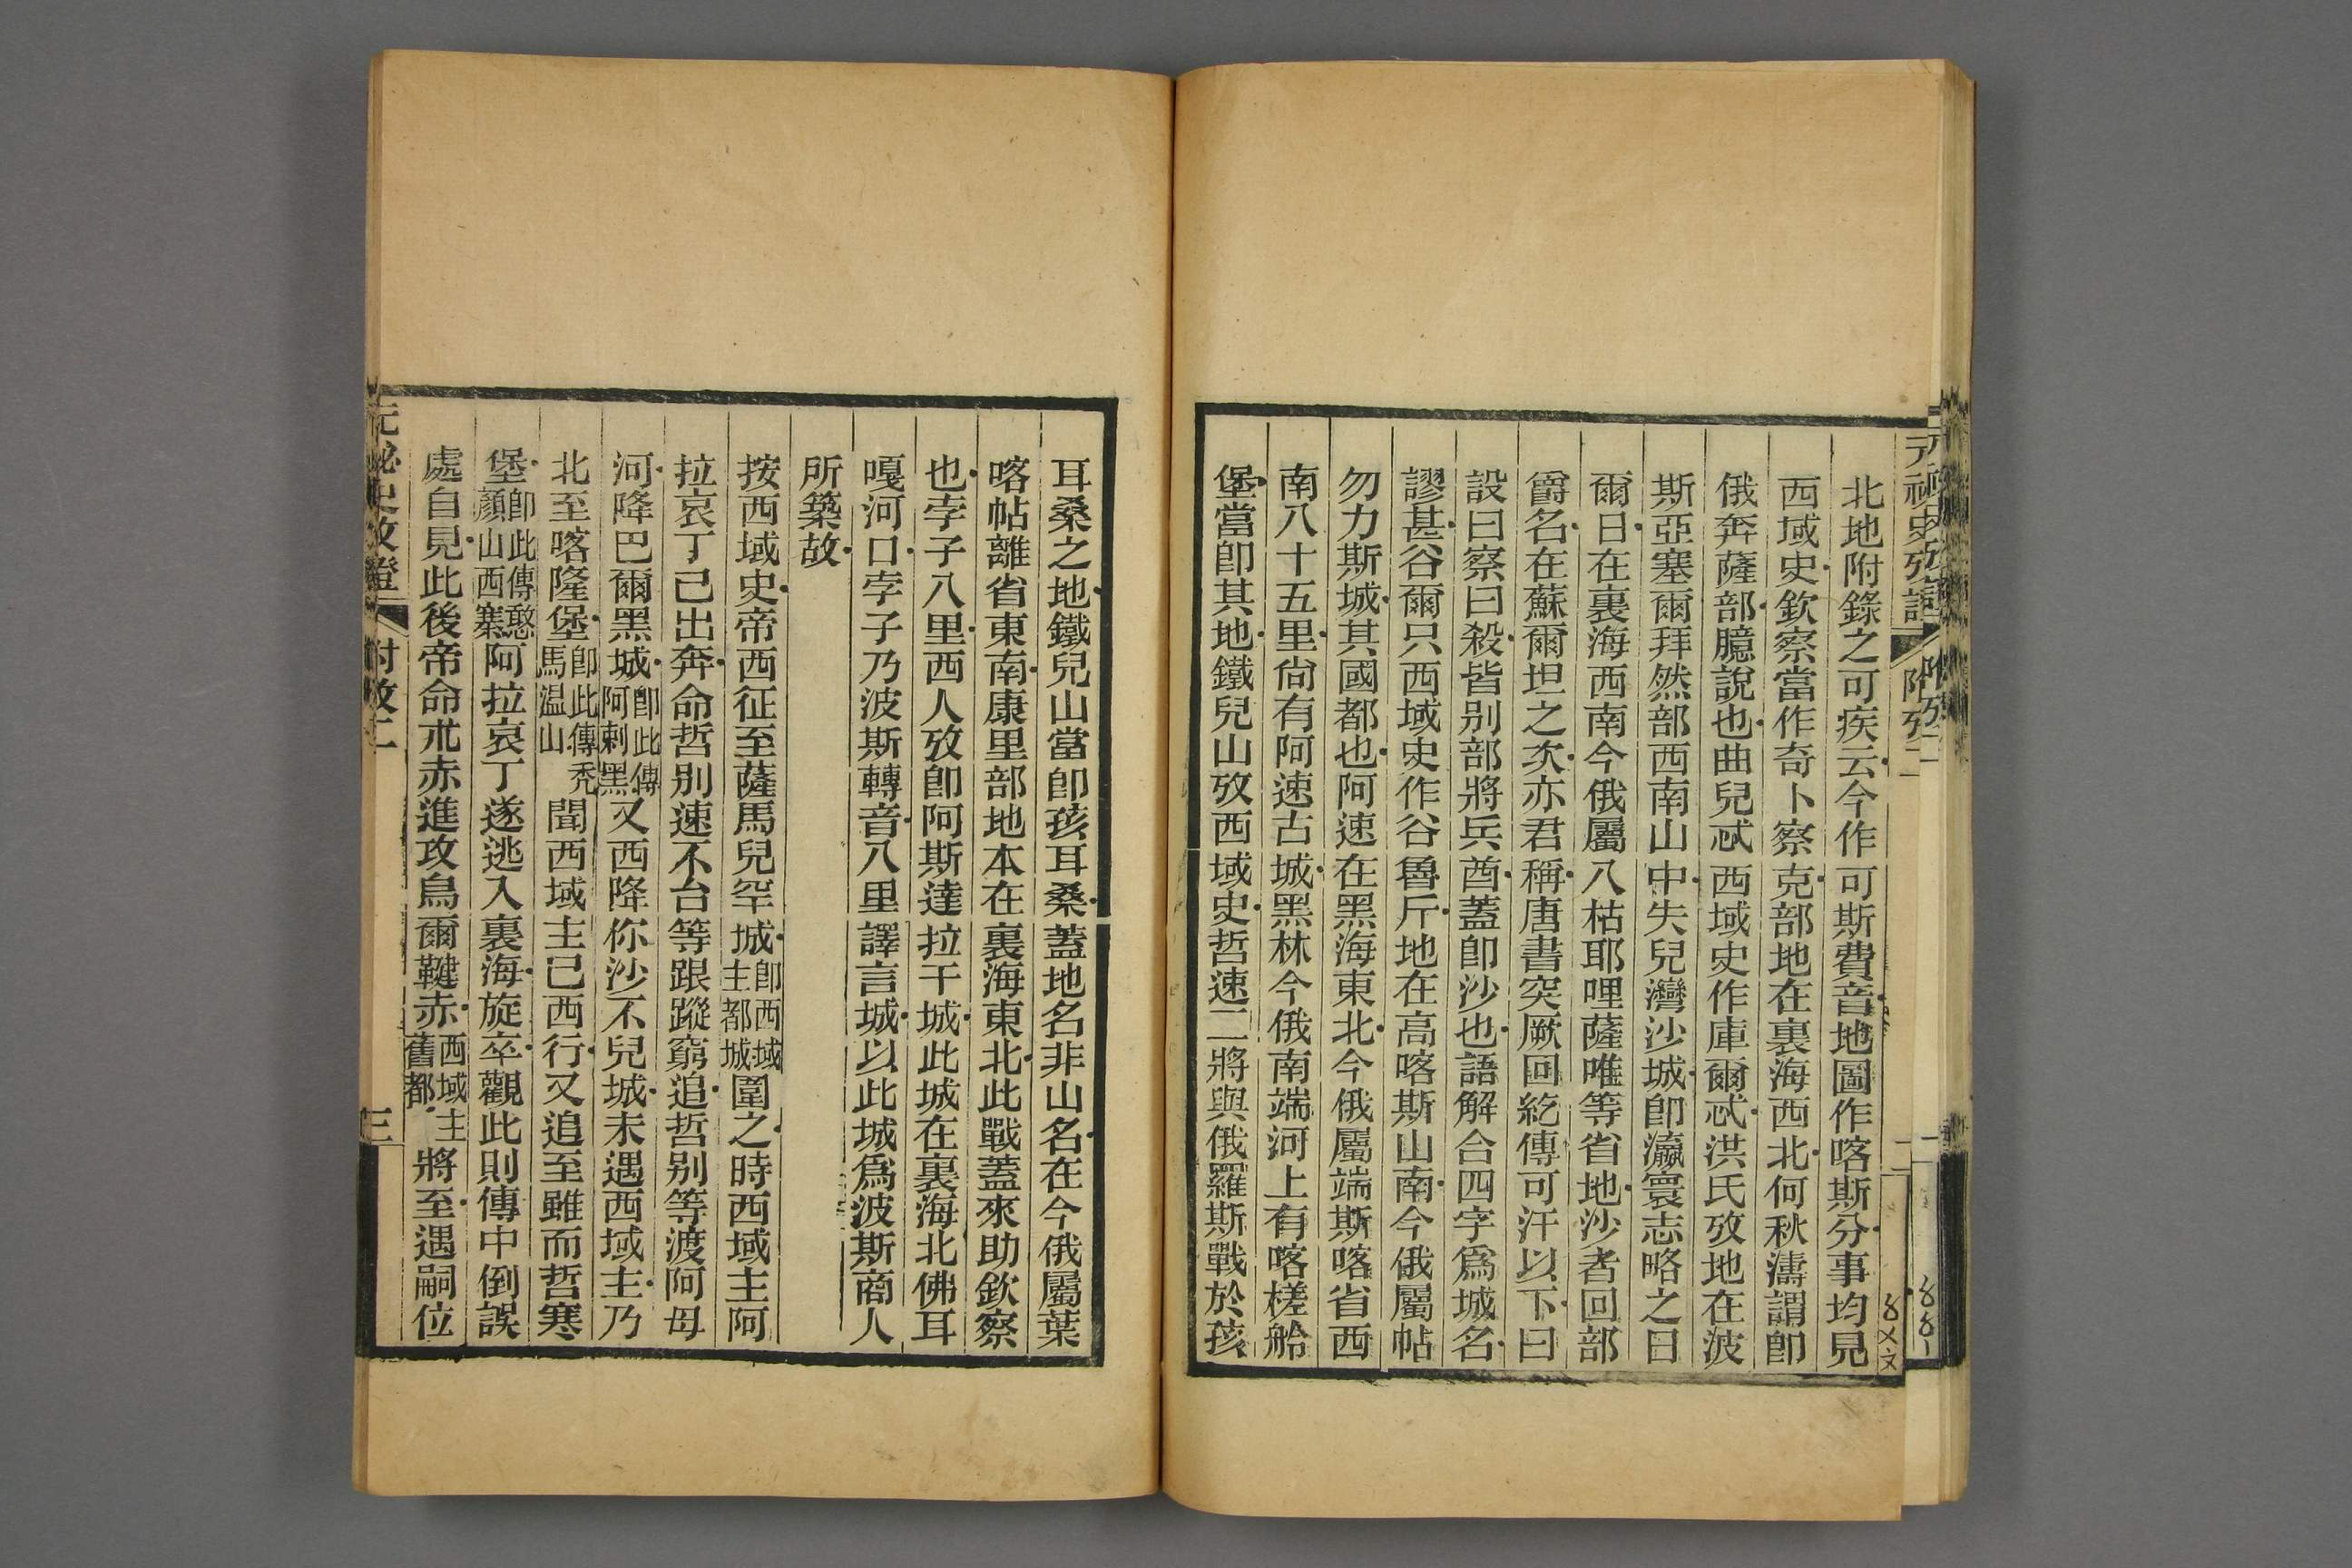 北地附錄之可疾云今作可斯費音地圖作喀斯分事均見
西域史欽察當作奇卜察克部地在裏海西北何秋濤謂卽
俄奔薩部臆說也曲兒忒西域史作庫爾忒洪氏攷地在波
斯亞塞爾拜然部西南山中失兒灣沙城卽瀛寰志略之日
爾日在裏海西南今俄屬八枯耶哩薩唯等省地沙者回部
爵名在蘇爾坦之次亦君稱唐書突厥回紇傳可汗以下曰
設曰察曰殺皆別部將兵酋蓋卽沙也語解合四字爲城名
謬甚谷爾只西域史作谷魯斤地在高喀斯山南今俄屬帖
勿力斯城其國都也阿速在黑海東北今俄屬端斯喀省西
南八十五里尙有阿速古城黑林今俄南端河上有喀槎舲
堡當卽其地鐵兒山攷西域史哲速二將與俄羅斯戰於孩
元秘史攷證 附攷二 二
耳桑之地鐵兒山當卽孩耳桑蓋地名非山名在今俄屬葉
喀帖離省東南康里部地本在裏海東北此戰蓋來助欽察
也孛子八里西人攷卽阿斯達拉干城此城在裏海北佛耳
嘎河口孛子乃波斯轉音八里譯言城以此城爲波斯商人
所築故
按西域史帝西征至薩馬兒罕城卽西域主都城圍之時西域主阿
拉哀丁已出奔命哲別速不台等跟蹤窮追哲別等渡阿母
河降巴爾黑城卽此傳阿剌黑又西降你沙不兒城未遇西域主乃
北至喀隆堡卽此傳禿馬溫山聞西域主已西行又追至雖而哲寒
堡卽此傳憨顏山西寨阿拉哀丁遂逃入裏海旋卒觀此則傳中倒誤
處自見此後帝命朮赤進攻烏爾鞬赤西域主舊都將至遇嗣位
元秘史攷證 附攷二 三